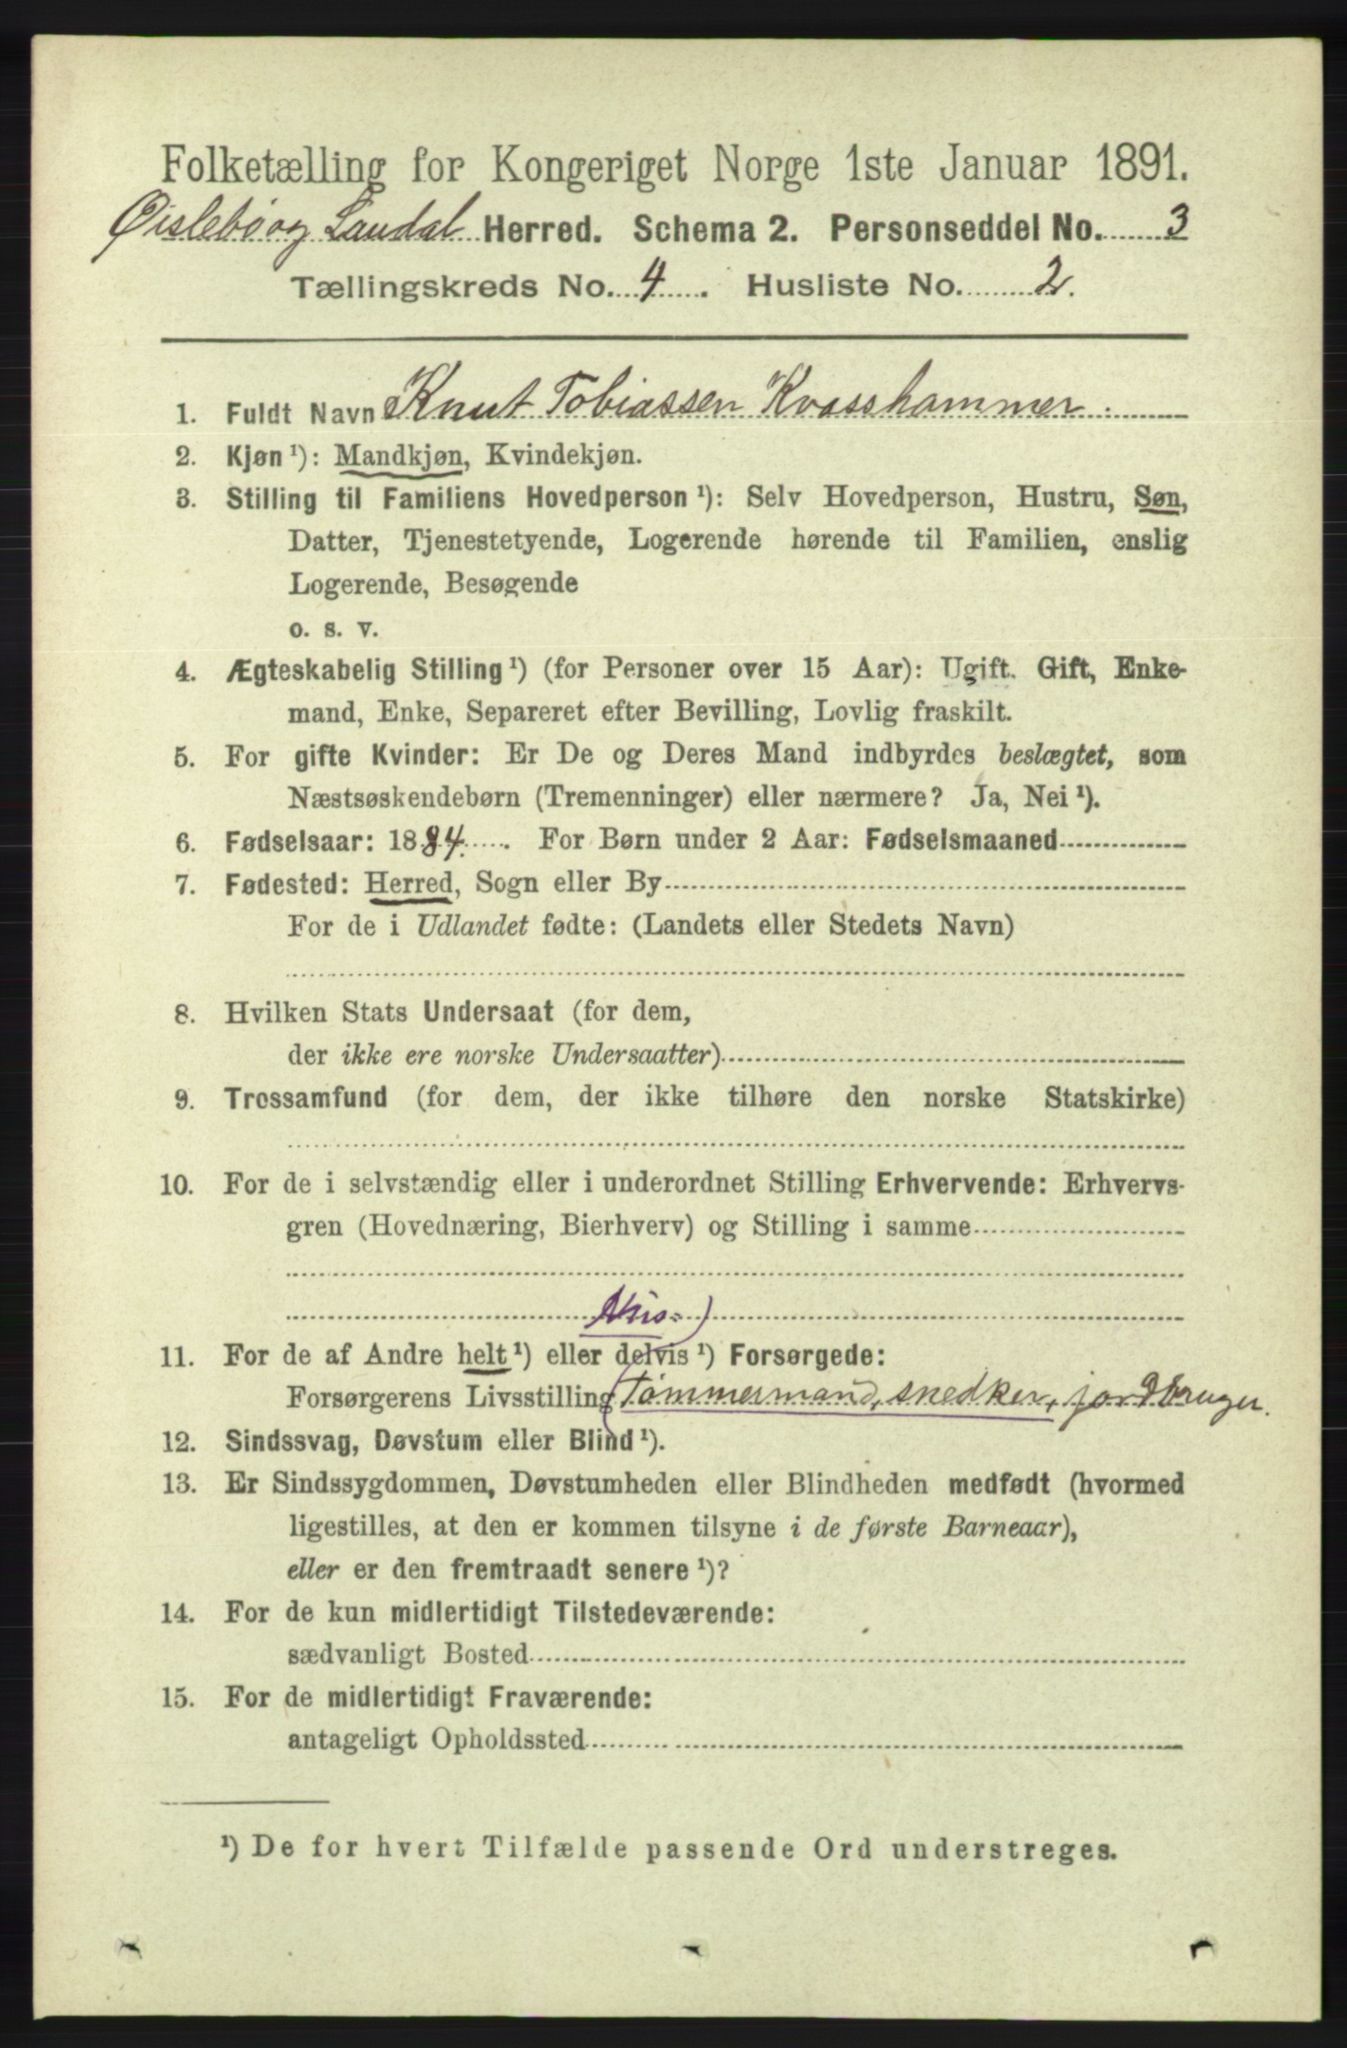 Folketælling for Kongeriget Norge 1ste Januar 1891.
Øislebö og Laudal Herred. Schema 2. Personseddel No. 3
Tællingskreds No. 4. Husliste No. 2.
1. Fuldt Navn Knut Tobiassen Kvasshammer.
2. Kjøn ¹): Mandkjøn, Kvindekjøn.
3. Stilling til Familiens Hovedperson ¹): Selv Hovedperson, Hustru, Søn,
Datter, Tjenestetyende, Logerende hørende til Familien, enslig
Logerende, Besøgende
o. s. v.
4. Ægteskabelig Stilling ¹) (for Personer over 15 Aar): Ugift. Gift, Enke-
mand, Enke, Separeret efter Bevilling, Lovlig fraskilt.
5. For gifte Kvinder: Er De og Deres Mand indbyrdes beslægtet, som
Næstsøskendebørn (Tremenninger) eller nærmere? Ja, Nei ¹).
6. Fødselsaar: 1884. For Børn under 2 Aar: Fødselsmaaned
7. Fødested: Herred, Sogn eller By
For de i Udlandet fødte: (Landets eller Stedets Navn)
8. Hvilken Stats Undersaat (for dem,
der ikke ere norske Undersaatter)
9. Trossamfund (for dem, der ikke tilhøre den norske Statskirke)
10. For de i selvstændig eller i underordnet Stilling Erhvervende: Erhvervs-
gren (Hovednæring, Bierhverv) og Stilling i samme
11. For de af Andre helt ¹) eller delvis ¹) Forsørgede:
Forsørgerens Livsstilling Tømmermand, snedker, jordbruger.
12. Sindssvag, Døvstum eller Blind ¹).
13. Er Sindssygdommen, Døvstumheden eller Blindheden medfødt (hvormed
ligestilles, at den er kommen tilsyne i de første Barneaar),
eller er den fremtraadt senere ¹)?
14. For de kun midlertidigt Tilstedeværende:
sædvanligt Bosted
15. For de midlertidigt Fraværende:
antageligt Opholdssted
¹) De for hvert Tilfælde passende Ord understreges.